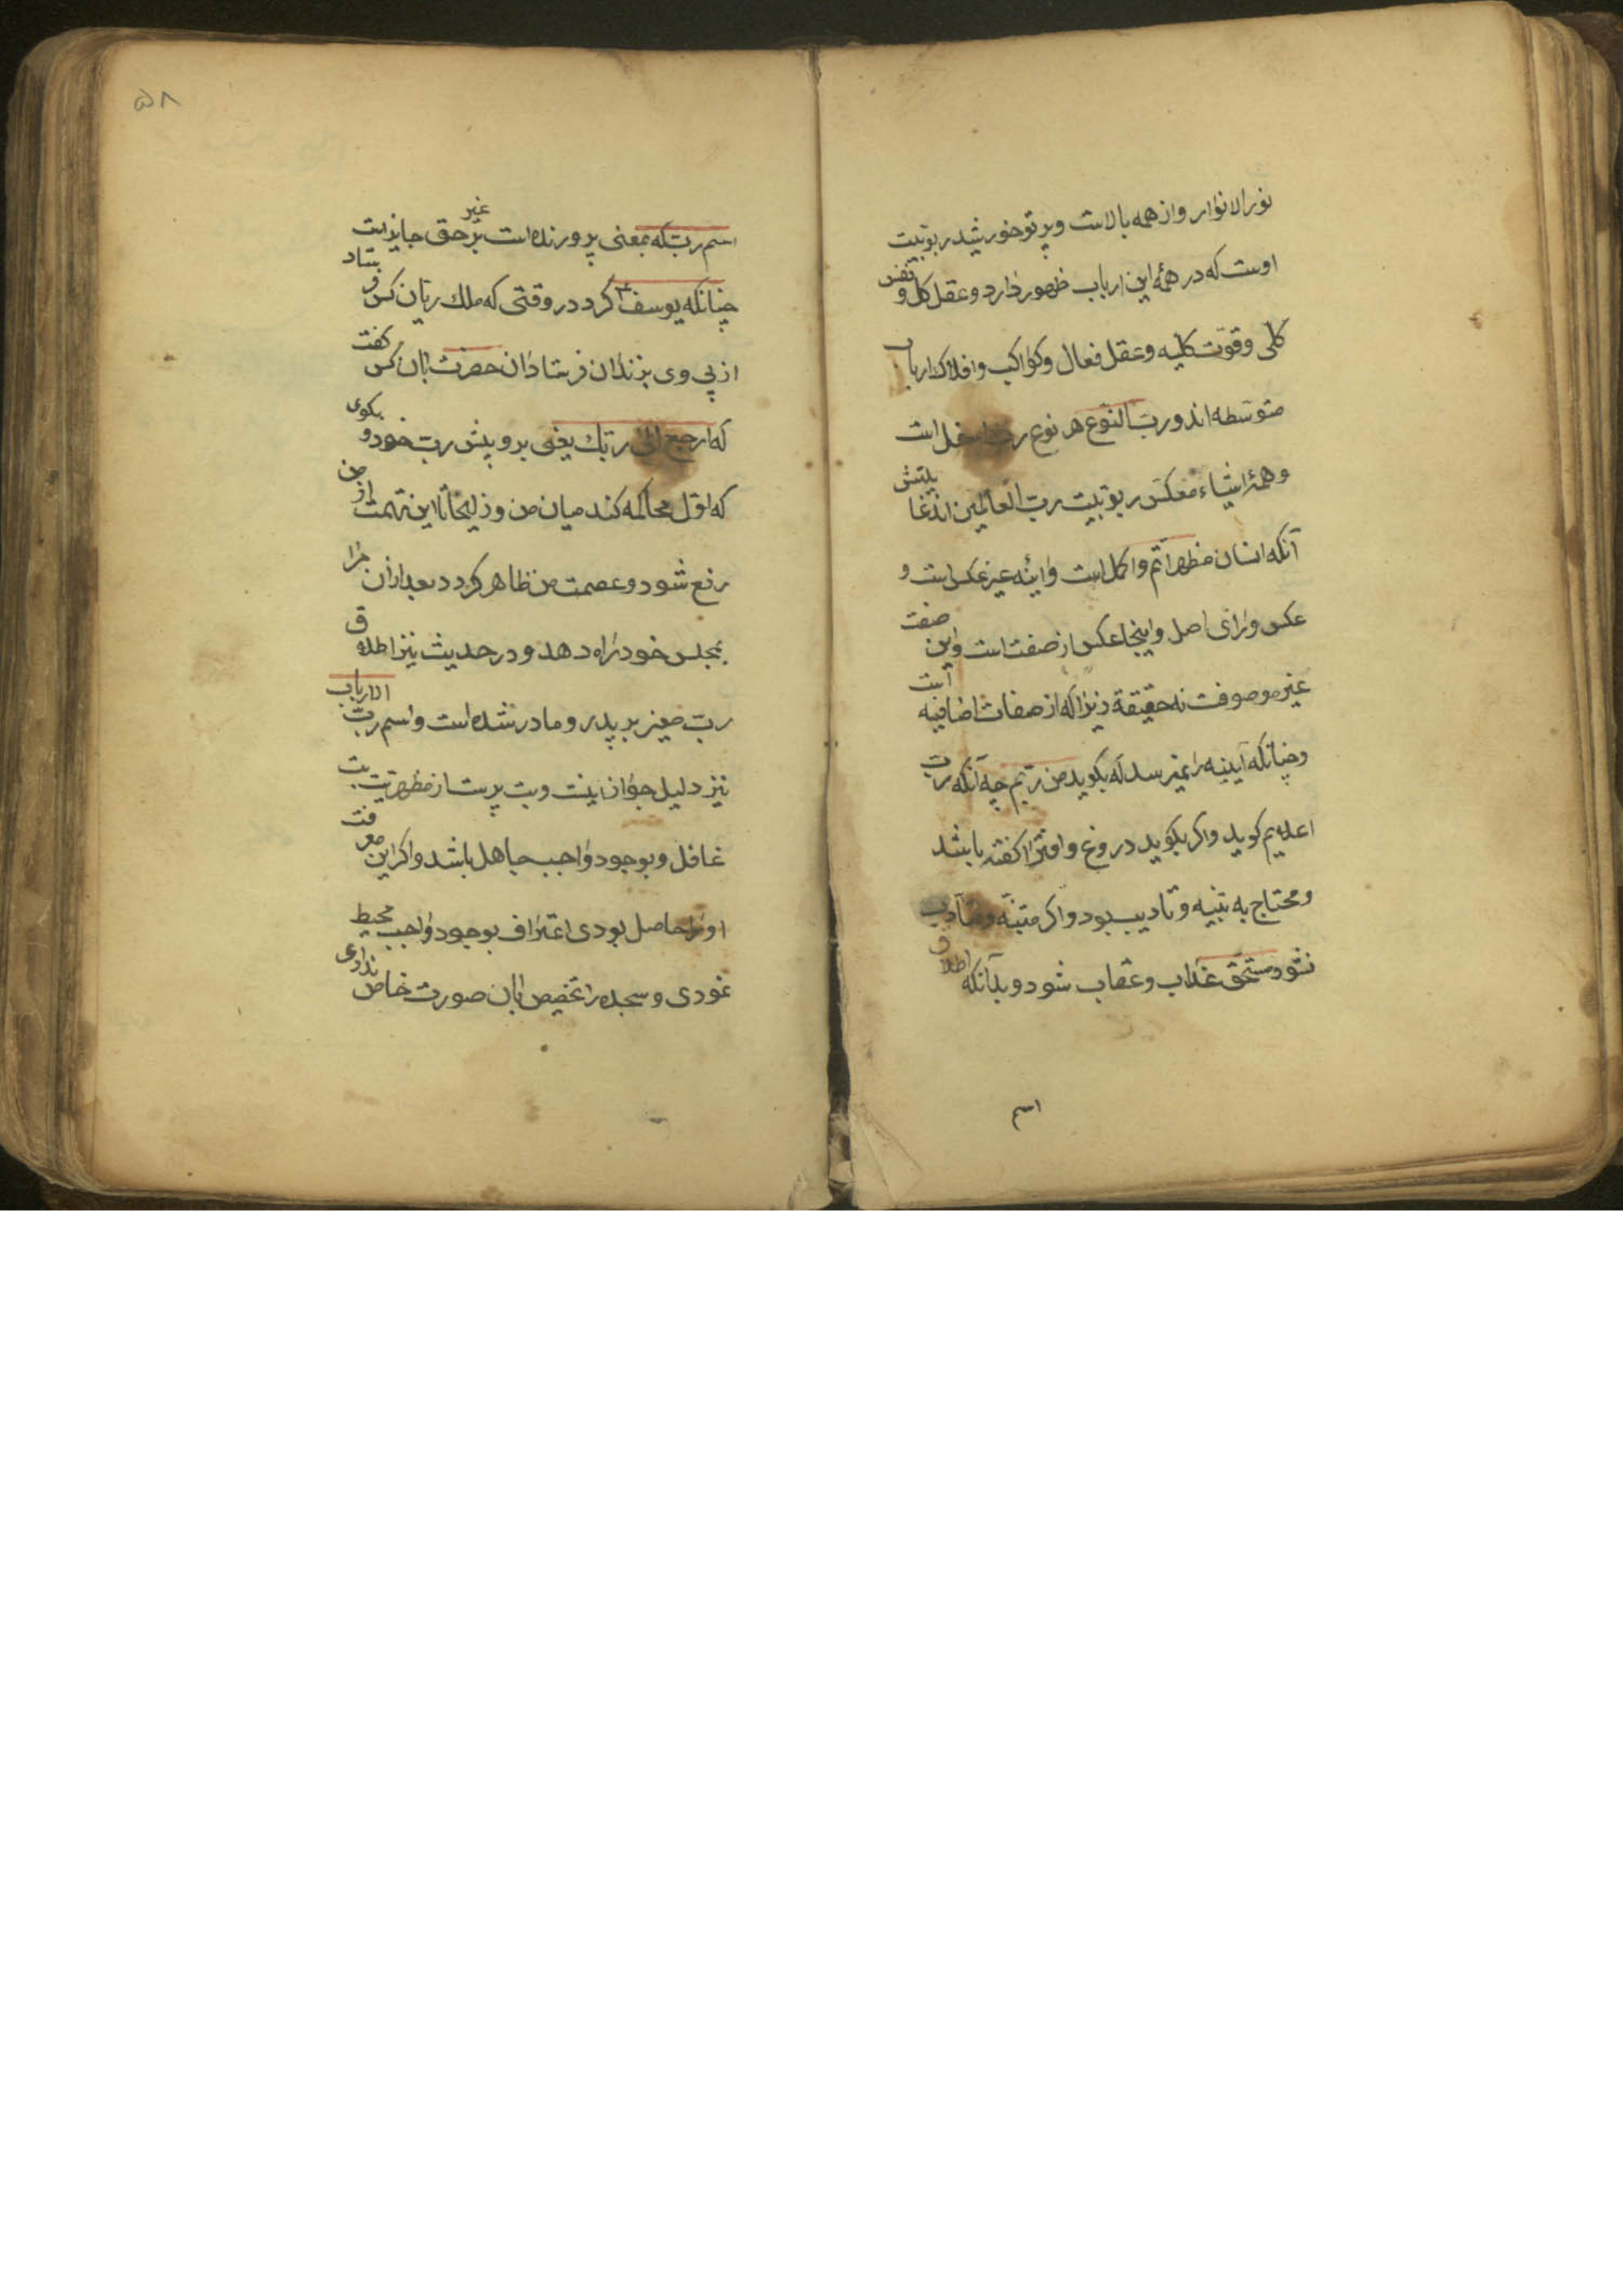 نور الانوار و از همه بالاست و پرتو خورشید ربوبیت
اوست که در همهٔ این ارباب ظهور دارد و عقل کل و نفس
کلی و قوّت کلیه و عقل فعال و کواکب و افلاک ارباب
متوسطه اند و ربّ النّوع هر نوع ربّ اسفل است
و همهٔ اشیاء معکس ربوبیت ربّ العالمین اند غایتش
آنکه انسان مظهر اتم و اکمل است و اینه غیر عکس است و
عکس ورای اصل و اینجا عکس از صفت است و این صفت
غیر موصوفت نه حقیقة زیرا که از صفات اضافیه است
و چنانکه آیینه را نمیرسد که بکوید من ربّم چه آنکه ربّ
اعلایم کوید و اکر بکوید دروغ و افترا کفته باشد
و محتاج به تنبیه و تادیب بود و اکر متنبّه و متأدب
نشود مستحق عذاب و عقاب شود و بدآنکه اطلاق
اسم
۵۸
اسم ربّ که بمعنی پرورنده است بر غیر حق جایز است
چنانکه یوسف ع کرد در وقتی که ملک ریّان کس فرستاد
از پی وی بزندان فرستاد ان حضرت بان کس کفت
که ارجع الی ربّک یعنی برو پیش ربّ خود و بکوی
که اوّل محاکمه کند میان من و زلیخا تا این تهمت از من
رفع شود و عصمت من ظاهر کردد بعد ازان مرا
بمجلس خود راه دهد و در حدیث نیز اطلاق
ربّ صغیر بر پدر و مادر شده است و اسم ربّ الارباب
نیز دلیل جواز اینست و بت پرست از مظهریّت بت
غافل و بوجود واجب جاهل باشد و اکر این معرفت
او را حاصل بودی اعتراف بوجود واجب محیط
نمودی و سجده را تخصیص بان صورت خاص ندادی